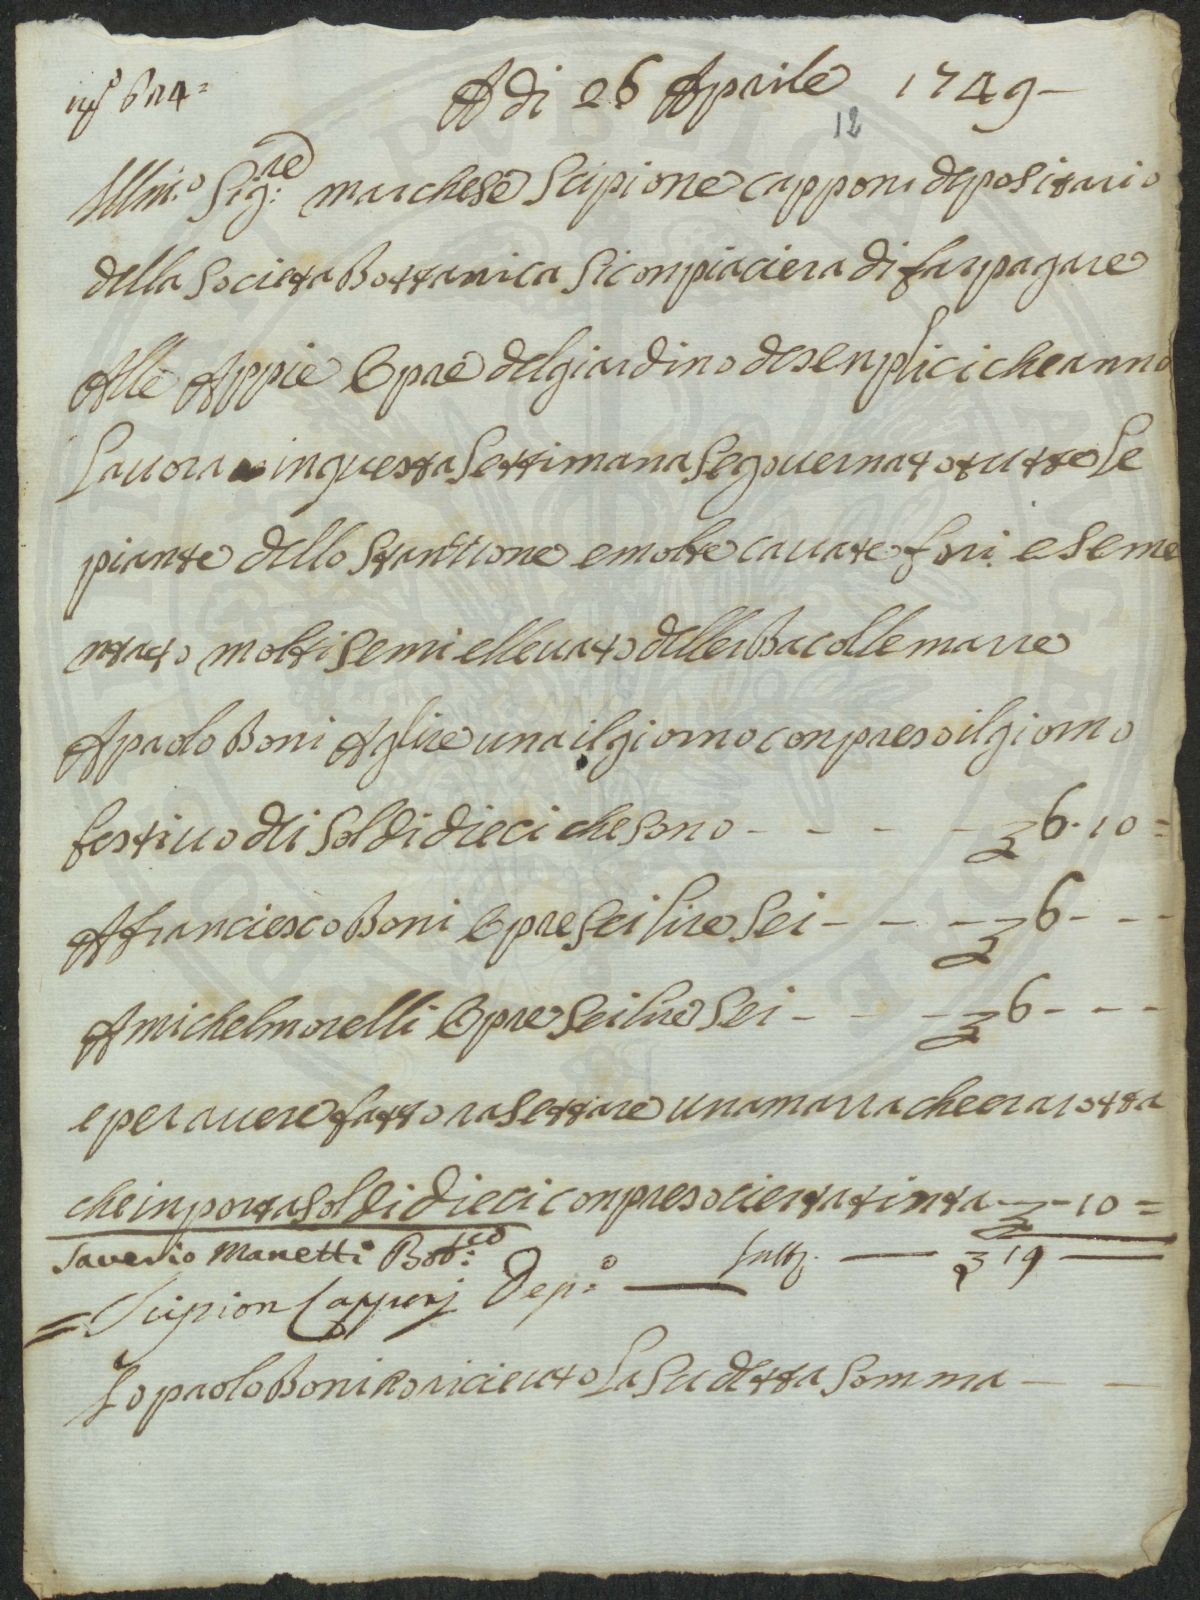 nº 614=
A di 26 Aprile 1749-
12
Illm.o Sig:re marchese Scipione capponi depositario
della Societa Bottanica Si conpiaciera di far pagare
Alle Appie Opre del giardino de Senplici che anno
Lauora in questa Settimana Se gouernato tutte Le
piante dello Stantione e molte cauate fori e Seme
ntato molti Semi e lleuato dell erba colle marre
A paolo Boni A glire una il giorno conpreso il giorno
festiuo di Soldi dieci che Sono - - - - £ 6.10=
A franciesco Boni Opre Sei lire Sei - - - £ 6 - - -
A michel morelli Opre Sei lire Sei - - - £ 6 - - -
e per auere fatto rasettare una marra che era rotta
che inporta Soldi dieci conpreso cierta tinta £ - 10 =
Saverio Manetti Bot:co £ 19
= Scipion Capponj Dep:o
Io paolo Boni o riceuto La Su detta Somma - -